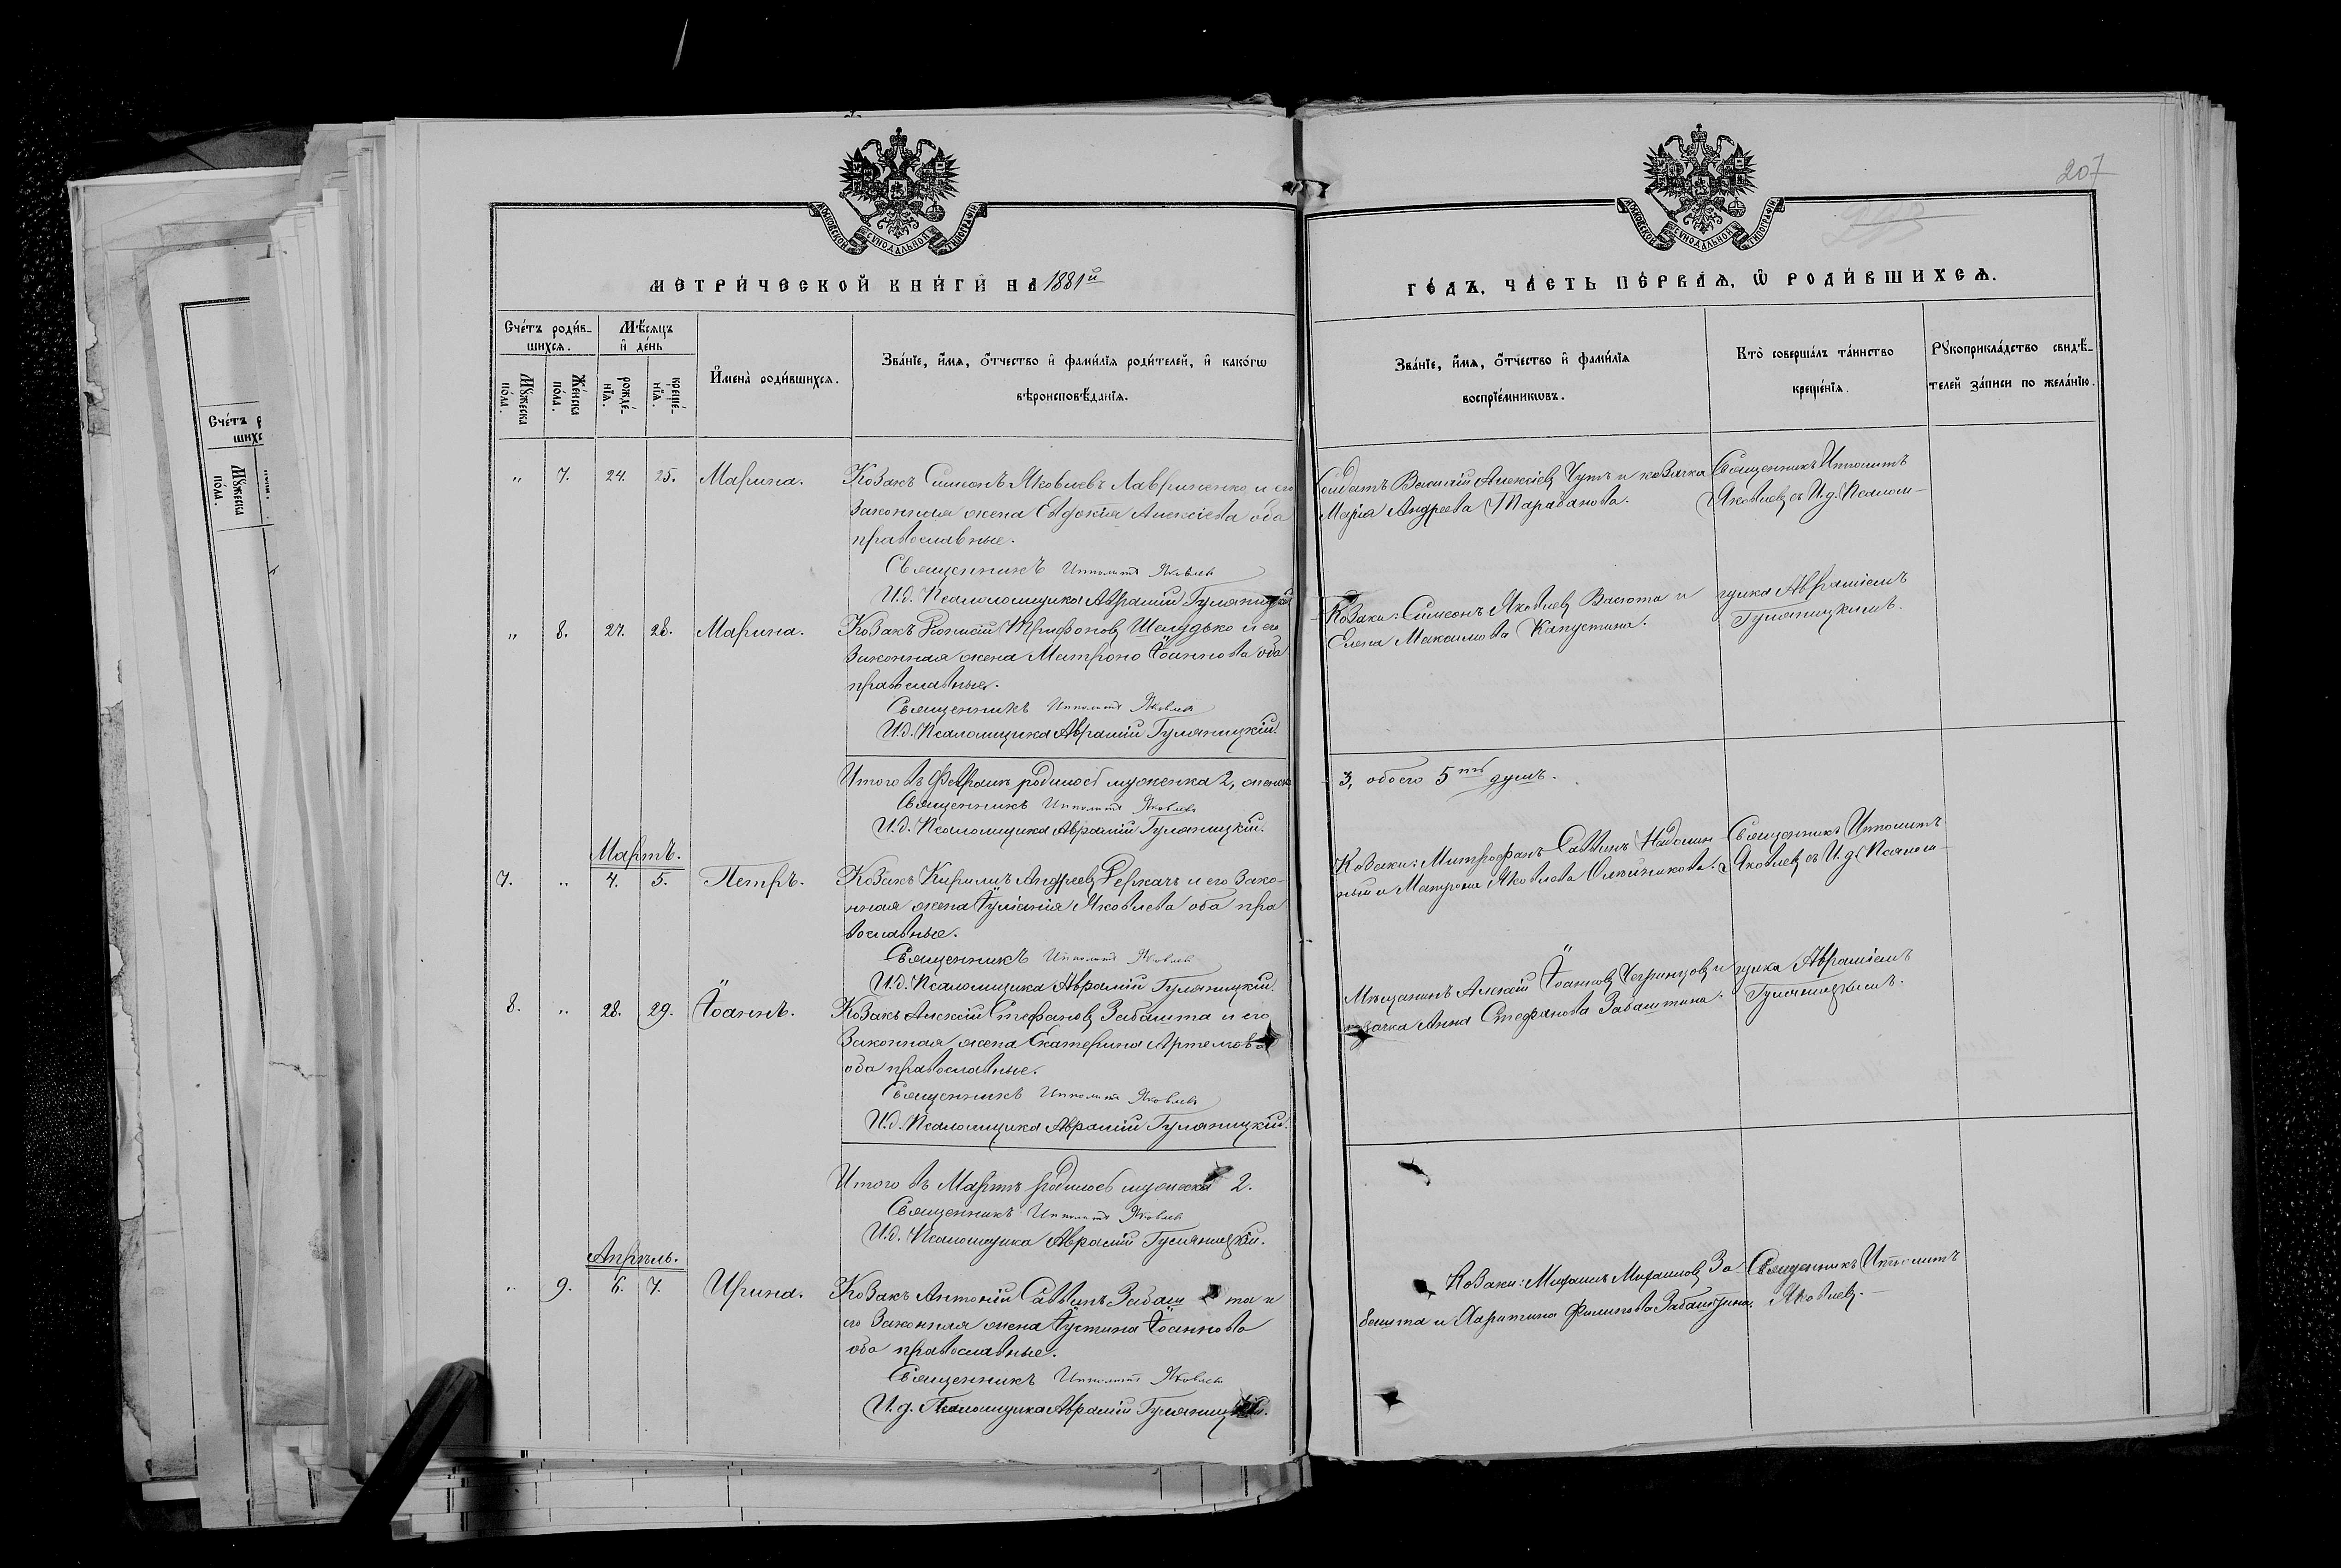 207
МОСКОВСКОЙ СѴНОДАЛЬНОЙ ТИПОГРАФІИ
МОСКОВСКОЙ СѴНОДАЛЬНОЙ ТИПОГРАФІИ
МЕТРИ́ЧЕСКОЙ КНИ́ГИ НА 1881й
ГО́ДЪ, ЧА́СТЬ ПЕ́РВАЯ, Ѡ РОДИ́ВШИХСЯ.
Сче́тъ роди́в-
шихся.
Мꙋ́жеска по́ла.
Же́нска по́ла.
Мѣ́сяцъ
и де́нь
рожде́-нїя.
креще́-нїя.
И҆мена̀ роди́вшихся.
Зва́нїе, и҆́мя, ѻ҆́тчество и҆ фами́лїя роди́телей, и҆ како́гѡ
вѣроисповѣ́данїя.
Зва́нїе, и҆́мя, ѻ҆́тчество и҆ фами́лїя
воспрїе́мникѡвъ.
Кто̀ соверша́лъ та́инство
креще́нїя.
Рꙋкоприкла́дство свидѣ́-
телей за́писи по жела́нїю.
" 7. 24. 25. Марина.
Козакъ Симеонъ Яковлевъ Лавриненко и его
законная жена Евдокія Алексіева оба
православные.
Священникъ Ипполитъ Яковлевъ
И.д. Псаломщика Аврамій Гуляницкій
Солдатъ Василій Алексіевъ Чутъ и козачка
Марія Андреева Тараванова.
Священникъ Ипполитъ
Яковлевъ съ И.д. Псалом-
" 8. 27. 28. Марина.
Козакъ Трифоновъ Шелудько и его
законная жена Матрона Іоаннова оба
православные.
Священникъ Ипполитъ Яковлевъ
И.д. Псаломщика Аврамій Гуляницкій.
Козаки: Симеонъ Яковлевъ Васюта и
Елена Максимова Капустина.
щика Авраміемъ
Гуляницкимъ.
Итого въ Февралѣ родилось мужеска 2, женска
3, обоего 5ть душъ.
Священникъ Ипполитъ Яковлевъ
И.д. Псаломщика Аврамій Гуляницкій.
Мартъ.
7. " 4. 5. Петръ.
Козакъ Кирилъ Андреевъ Деркачъ и его зако-
нная жена Іуліанія Яковлева оба пра
вославные.
Священникъ Ипполитъ Яковлевъ
И.д. Псаломщика Аврамій Гуляницкій.
Козаки: Митрофанъ Саввинъ
ный и Матрона Яковлева Олейникова.
Священникъ Ипполитъ
Яковлевъ съ И.д. Псалом-
8. " 28. 29. Іоаннъ.
Козакъ Алексій Стефановъ Забашта и его
законная жена Екатерина Артемова
оба православные.
Священникъ Ипполитъ Яковлевъ
И.д. Псаломщика Аврамій Гуляницкій.
Мѣщанинъ Алексій Іоанновъ и
козачка Анна Стефанова Забаштина.
щика Авраміемъ
Гуляницкимъ.
Итого въ Мартѣ родилось мужеска 2.
Священникъ Ипполитъ Яковлевъ
И.д. Псаломщика Аврамій Гуляницкій.
Апрѣль.
" 9. 6. 7. Ирина.
Козакъ Антоній Саввинъ Забаш та и
его законная жена Іустина Іоаннова
оба православные.
Священникъ Ипполитъ Яковлевъ
И.д. Псаломщика Аврамій Гуляницкій.
Козаки: Михаилъ Михаиловъ За
башта и Харитина Филипова Забаштина.
Священникъ Ипполитъ
Яковлевъ.